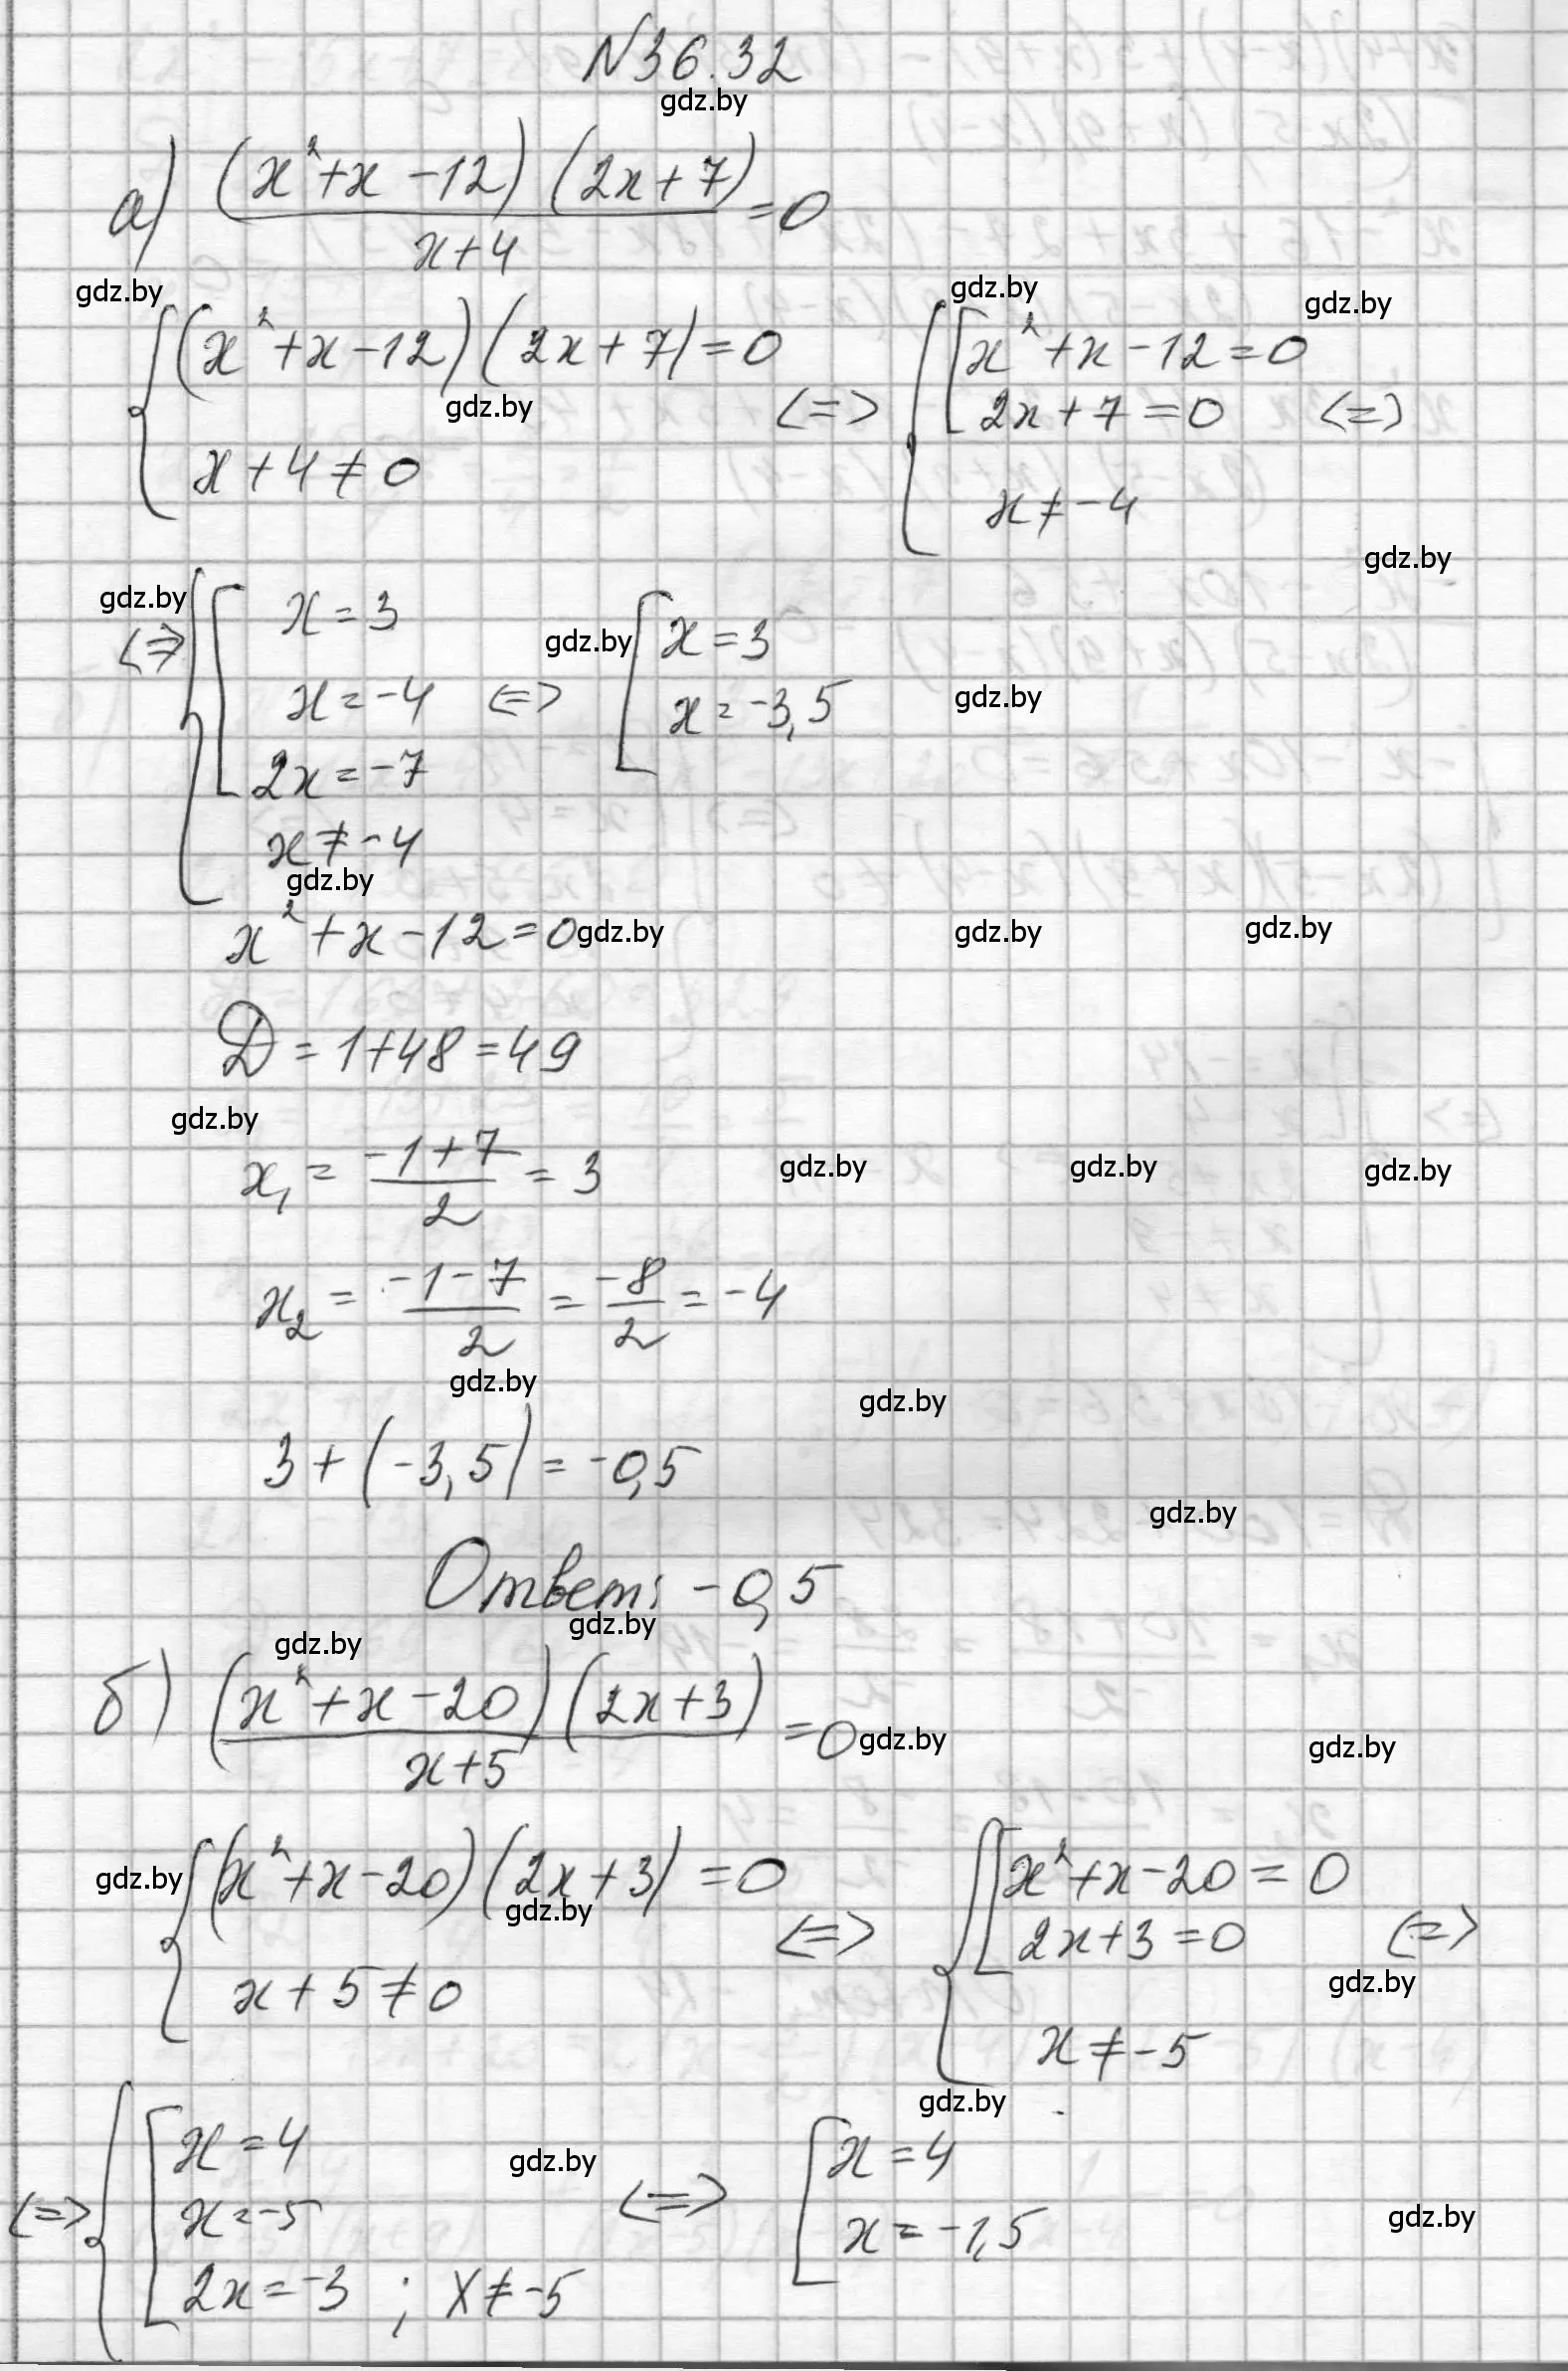 N36.32
gdz.by
а) (x²+x-12)(2x+7)/(x+4) =0
gdz.by gdz.by gdz.by
{ (x²+x-12)(2x+7)=0 <=> { [ x²+x-12=0
gdz.by 2x+7=0 <=>
x+4≠0 x≠-4
gdz.by
gdz.by
<=> { [ x=3 <=> gdz.by [ x=3
x=-4 x=-3,5 gdz.by
2x=-7
x≠-4
gdz.by
x²+x-12=0 gdz.by gdz.by gdz.by
D=1+48=49
gdz.by
x₁=(-1+7)/2=3 gdz.by gdz.by gdz.by
x₂=(-1-7)/2=-8/2=-4
gdz.by gdz.by
3+(-3,5)=-0,5
gdz.by
Ответ: -0,5
gdz.by gdz.by
б) (x²+x-20)(2x+3)/(x+5) =0 gdz.by gdz.by
gdz.by { (x²+x-20)(2x+3)=0 <=> { [ x²+x-20=0
gdz.by 2x+3=0 <=>
x+5≠0 gdz.by
x≠-5
gdz.by
<=> { [ x=4 gdz.by <=> [ x=4
x=-5 x=-1,5 gdz.by
2x=-3 ; x≠-5